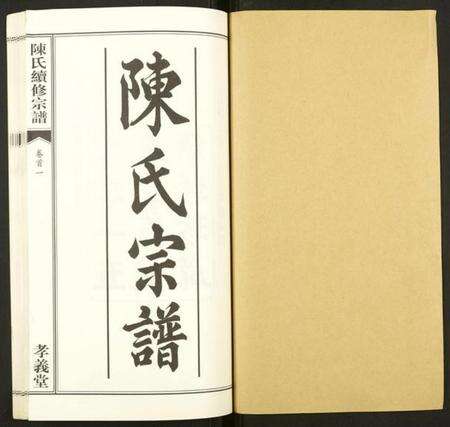 陳氏宗譜
陳氏續修宗譜
卷首一
孝義堂